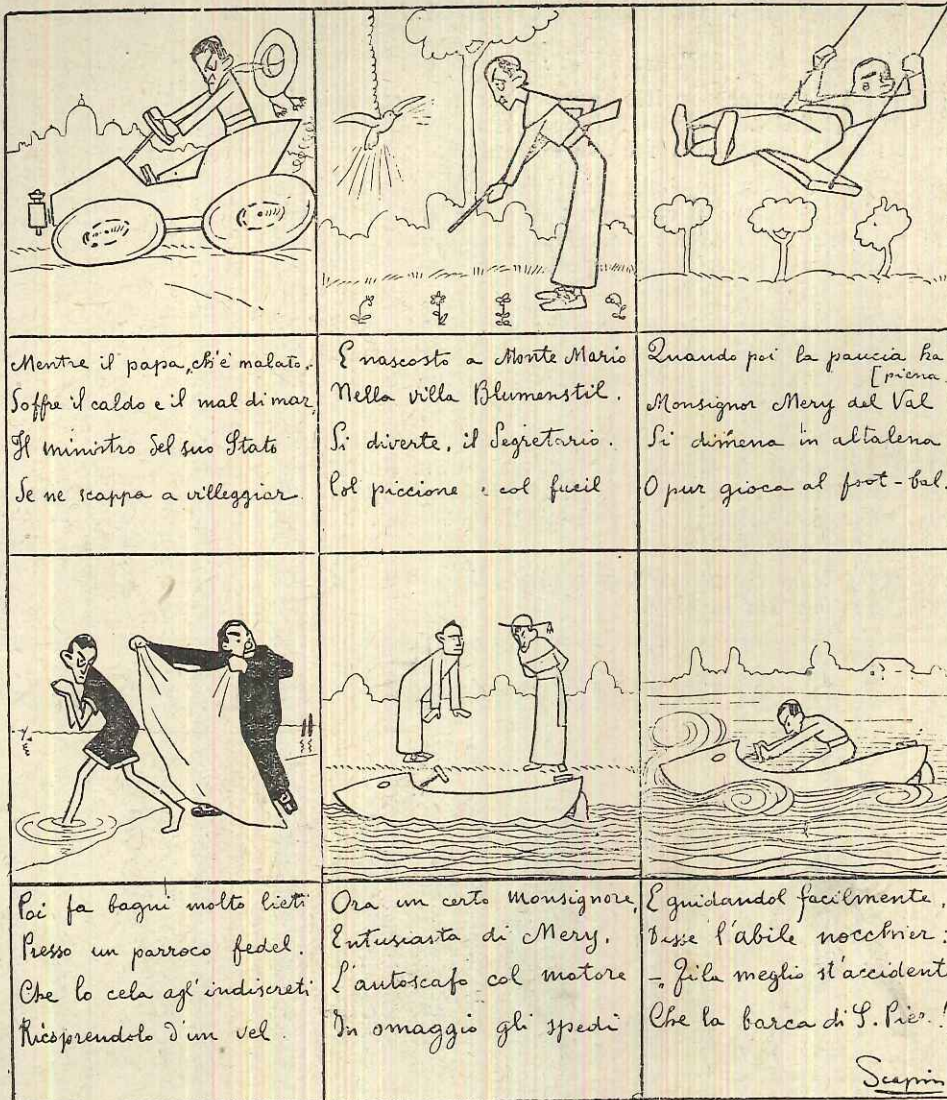 Mentre il papa, ch'è malato,
Soffre il caldo e il mal di mar,
Il ministro del suo Stato
Se ne scappa a villeggiar.
E nascosto a Monte Mario
Nella villa Blumenstil.
Si diverte, il Segretario.
Col piccione e col fucil
Quando poi la pancia ha
[piena.
Monsignor Mery del Val
Si dimena in altalena
O pur gioca al foot-bal.
Poi fa bagni molto lieti
Presso un parroco fedel.
Che lo cela agl'indiscreti
Ricoprendolo d'un vel.
Ora un certo Monsignore,
Entusiasta di Mery,
L'autoscafo col motore
In omaggio gli spedì
E guidandol facilmente,
Disse l'abile nocchier:
- Fila meglio st'accident
Che la barca di S. Pier!
Scarpin